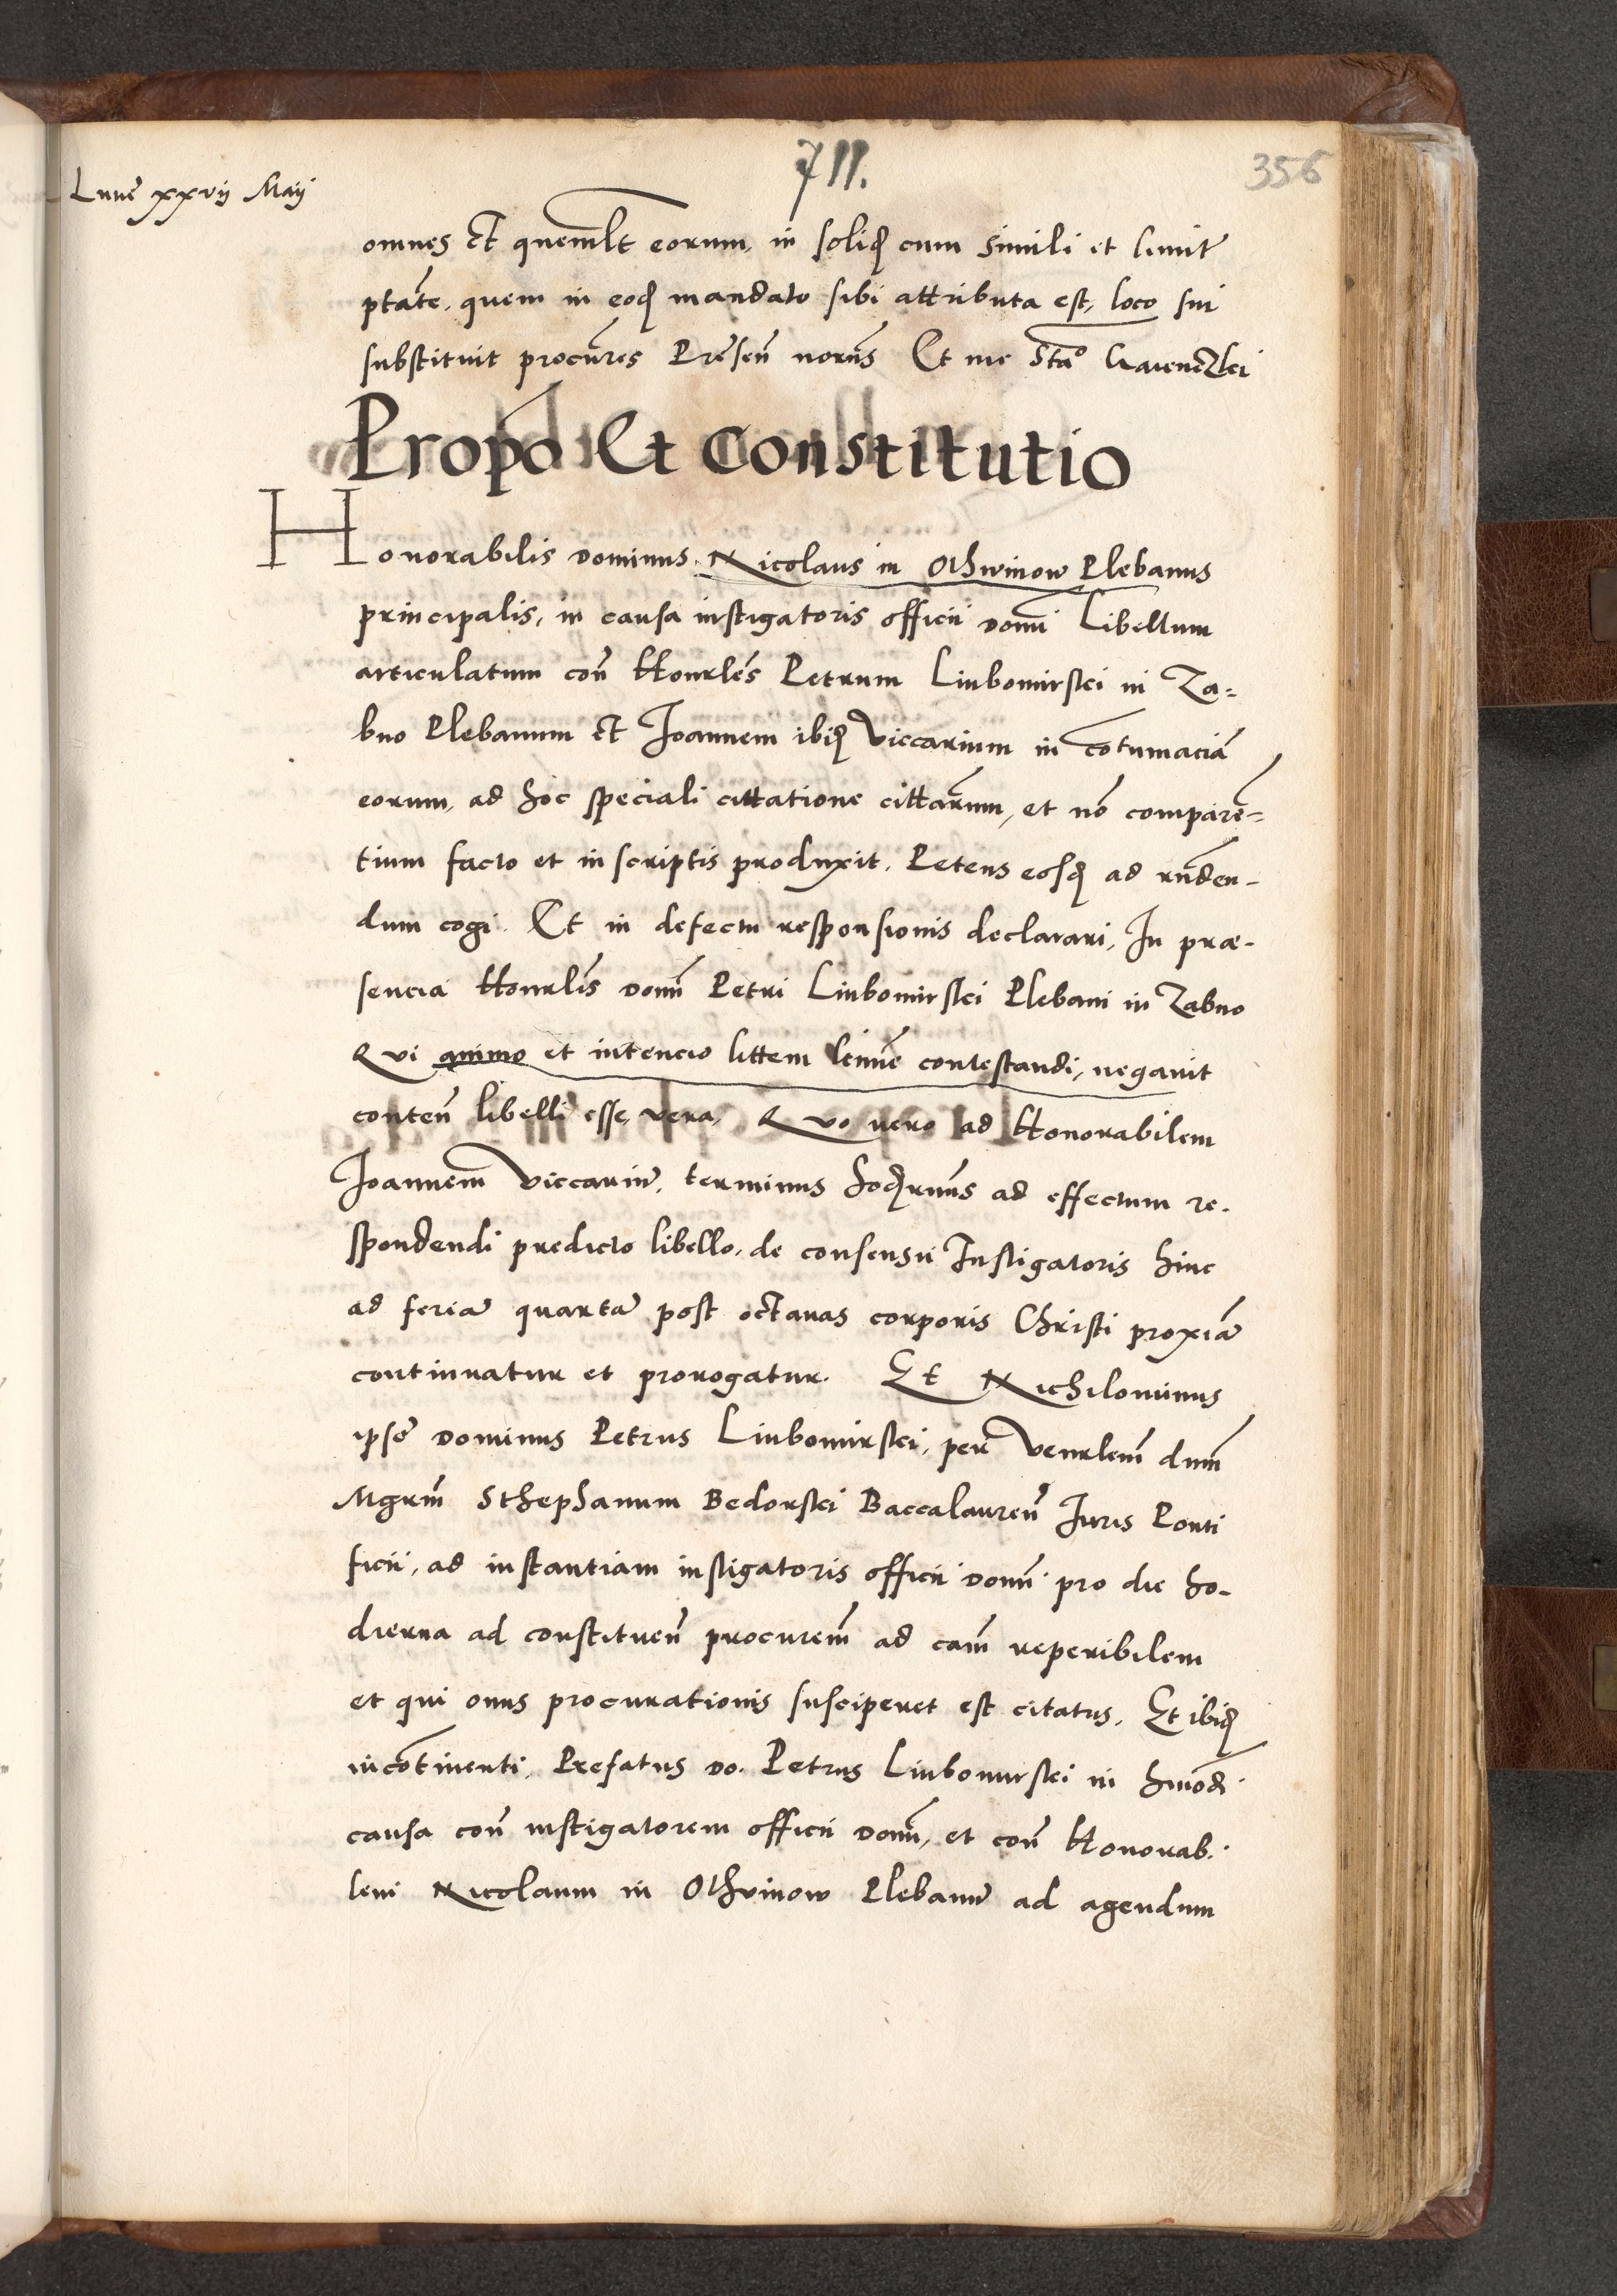 711.
356
Lunē xxvij Maij
omnes et quemlt̄ eorum, in solid cum simili et limit̄
ptāte, quem in eod mandato sibi attributa est, loco sui
substituit procūres Presen̄ nor̄us Et me Sta͞o
Propo͞ Et Constitutio
Honorabilis dominus Nicolaus in Othwinow Plebanus
principalis, in causa instigatoris officii domī Libellum
articulatum con̄ Honrlēs Petrum Liubomirskei in Za=
bno Plebanum et Joannem ibid Viccarium in co͞tumaciā
eorum, ad hoc speciali cittatione cittārum, et no͞ comparē=
tium facto et in scriptis produxit. Petens eosd ad rn̄den-
dum cogi. Et in defectu responsionis declarari, In præ-
sencia Honrlīs domī Petri Liubomirskei Plebani in Zabno
Qui animo et intencio littem contestandi, negauit
conten̄ libelli esse vera, Quo uero ad Honorabilem
Joannem Viccariū, terminus hod̄rnus ad effectum re-
spondendi predicto libello, de consensu Instigatoris hinc
ad feriā quartā post octauas corporis Christi proxiā
continuatur et prorogatur. Et Nichilominus
ipsē dominus Petrus Liubomirskei, per Venrlem̄ dnm̄
Mgrm̄ Sthephanum Bedorskei Baccalaureū Juris Ponti
ficii, ad instantiam instigatoris officii domī pro die ho-
dierna ad constituen̄ procurem̄ ad cam̄ reperibilem
et qui onus procurationis susciperet est citatus, Et ibid
inco͞tinenti, Prefatus do. Petrus Liubomirskei in hmōi
causa con̄ instigatorem officii domī, et con̄ Honorab.
lem Nicolaum in Othvinow Plebanū ad agendum